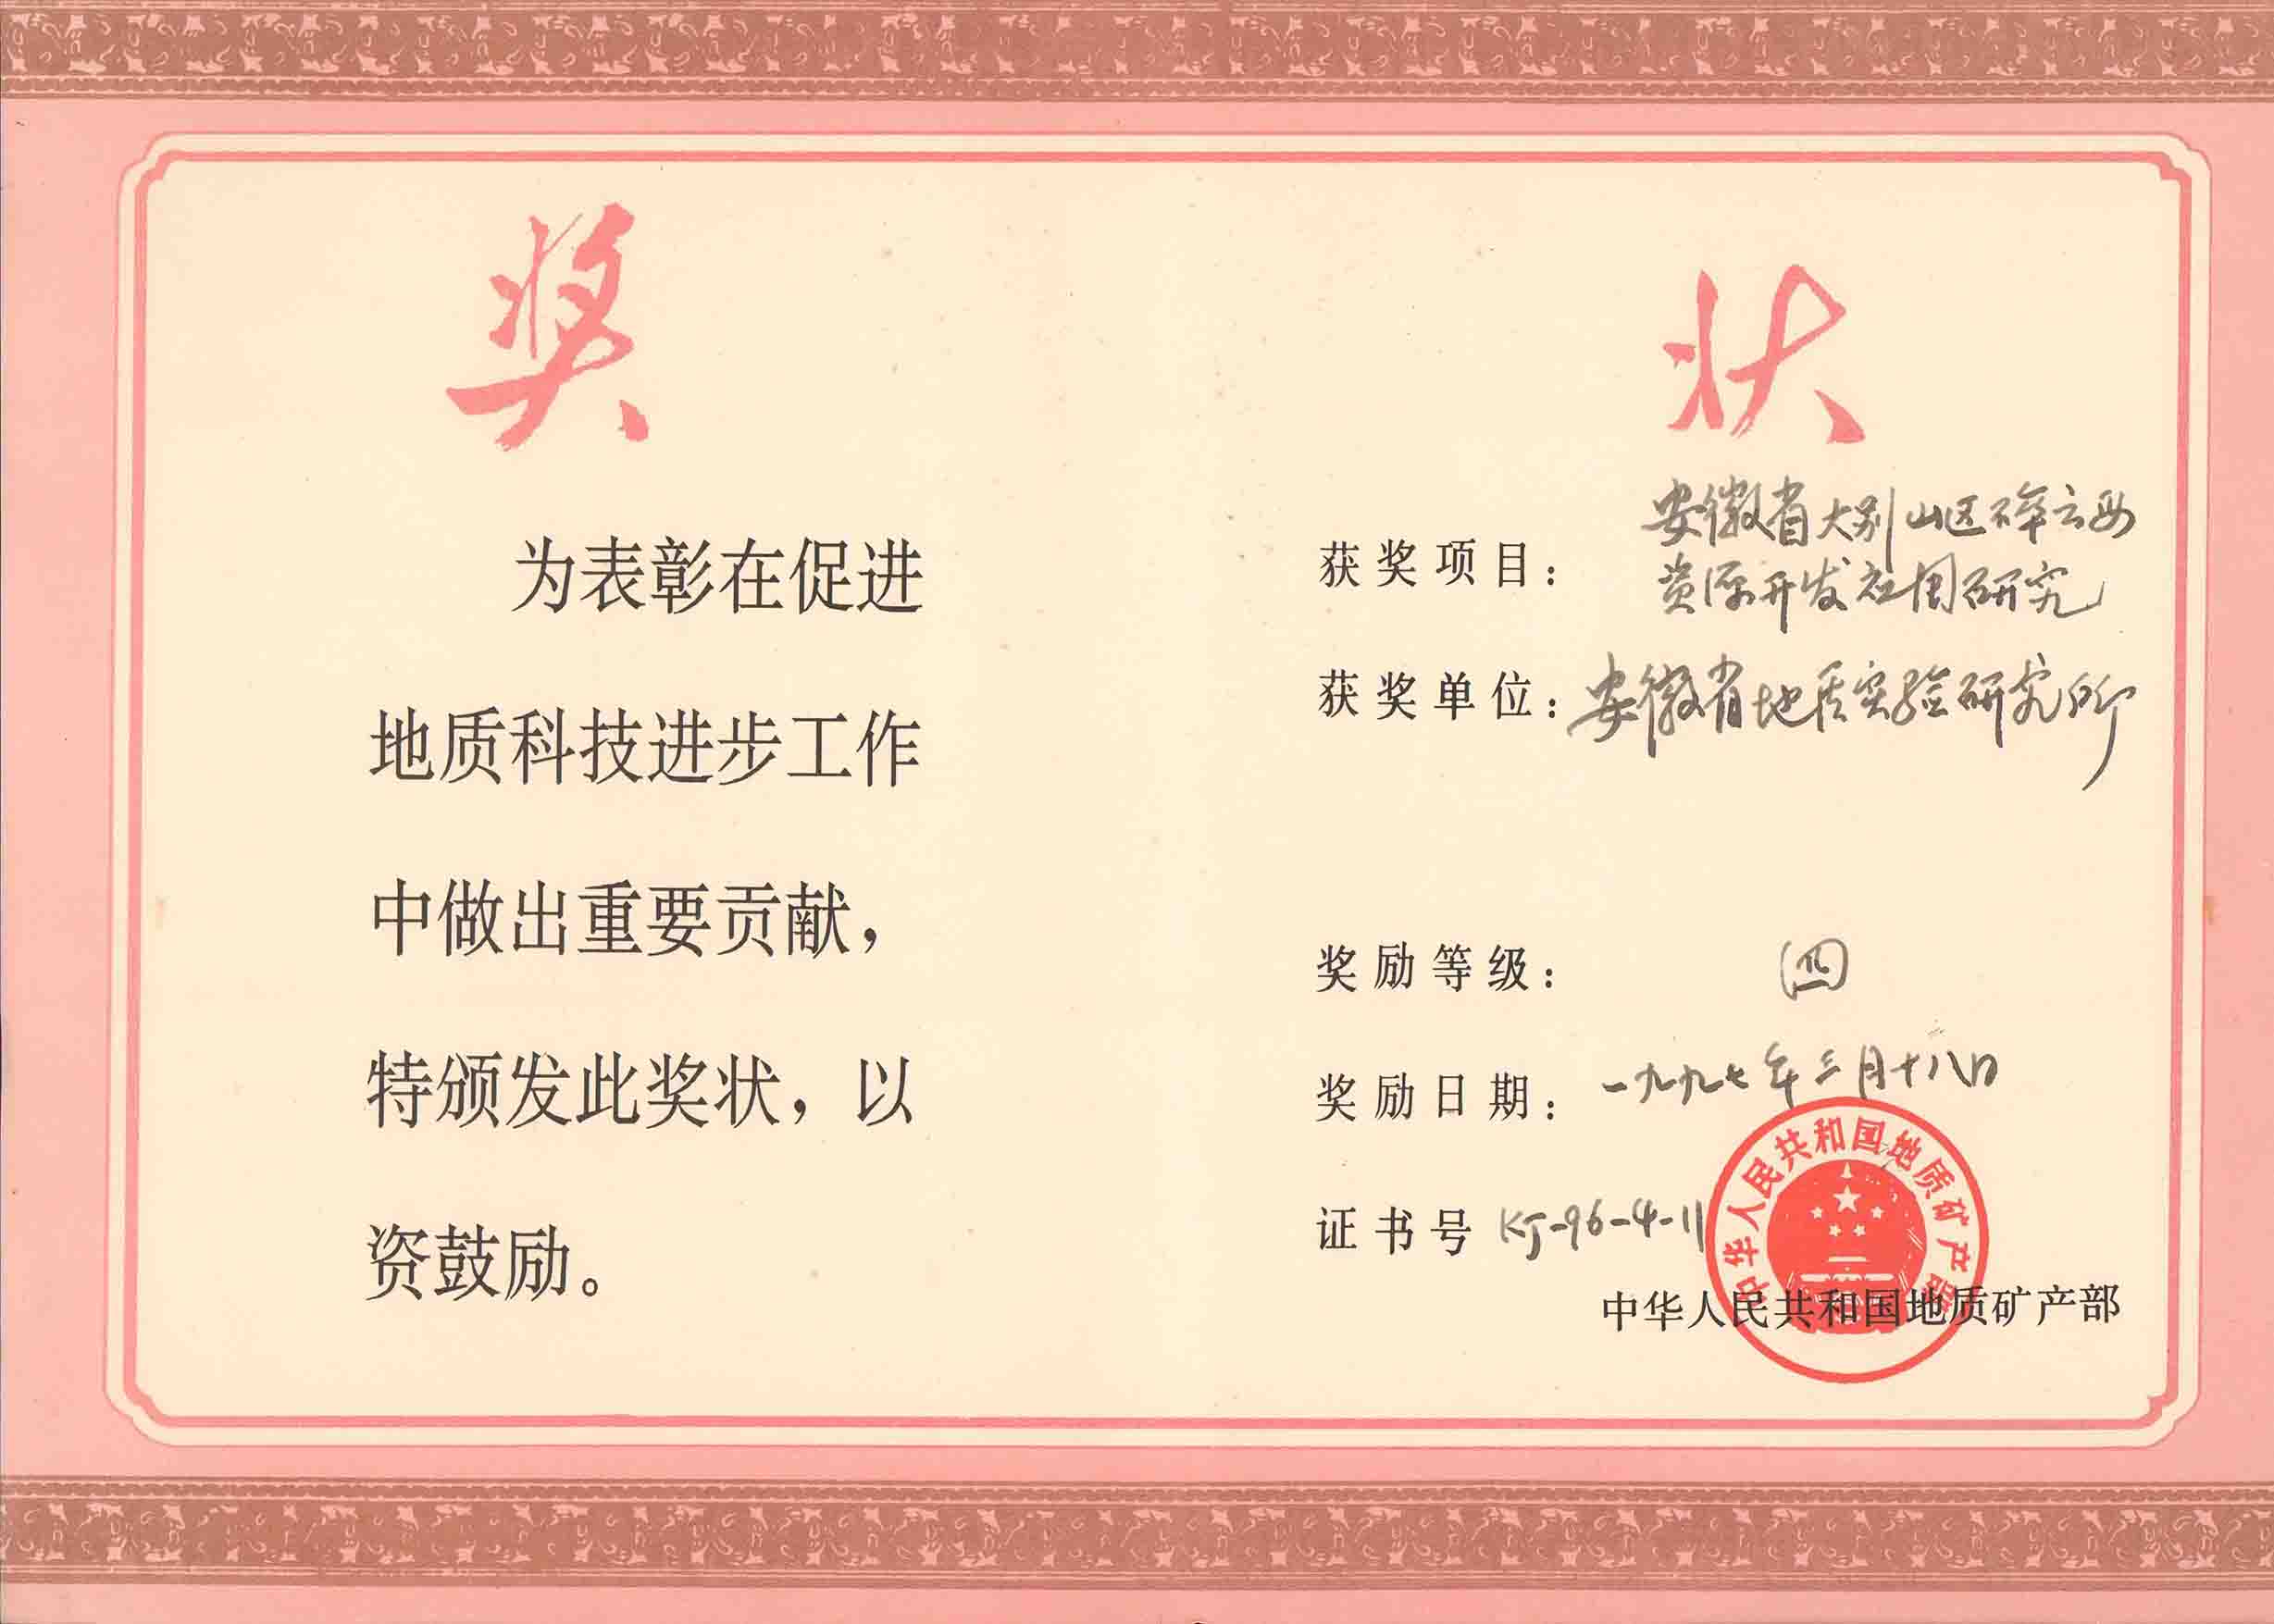 奖状
为表彰在促进
地质科技进步工作
中做出重要贡献，
特颁发此奖状，以
资鼓励。
获奖项目：安徽省大别山区碎云母
资源开发应用研究
获奖单位：安徽省地质实验研究所
奖励等级：四
奖励日期：一九九七年三月十八日
证书号 KJ-96-4-11
中华人民共和国地质矿产部
中华人民共和国地质矿产部